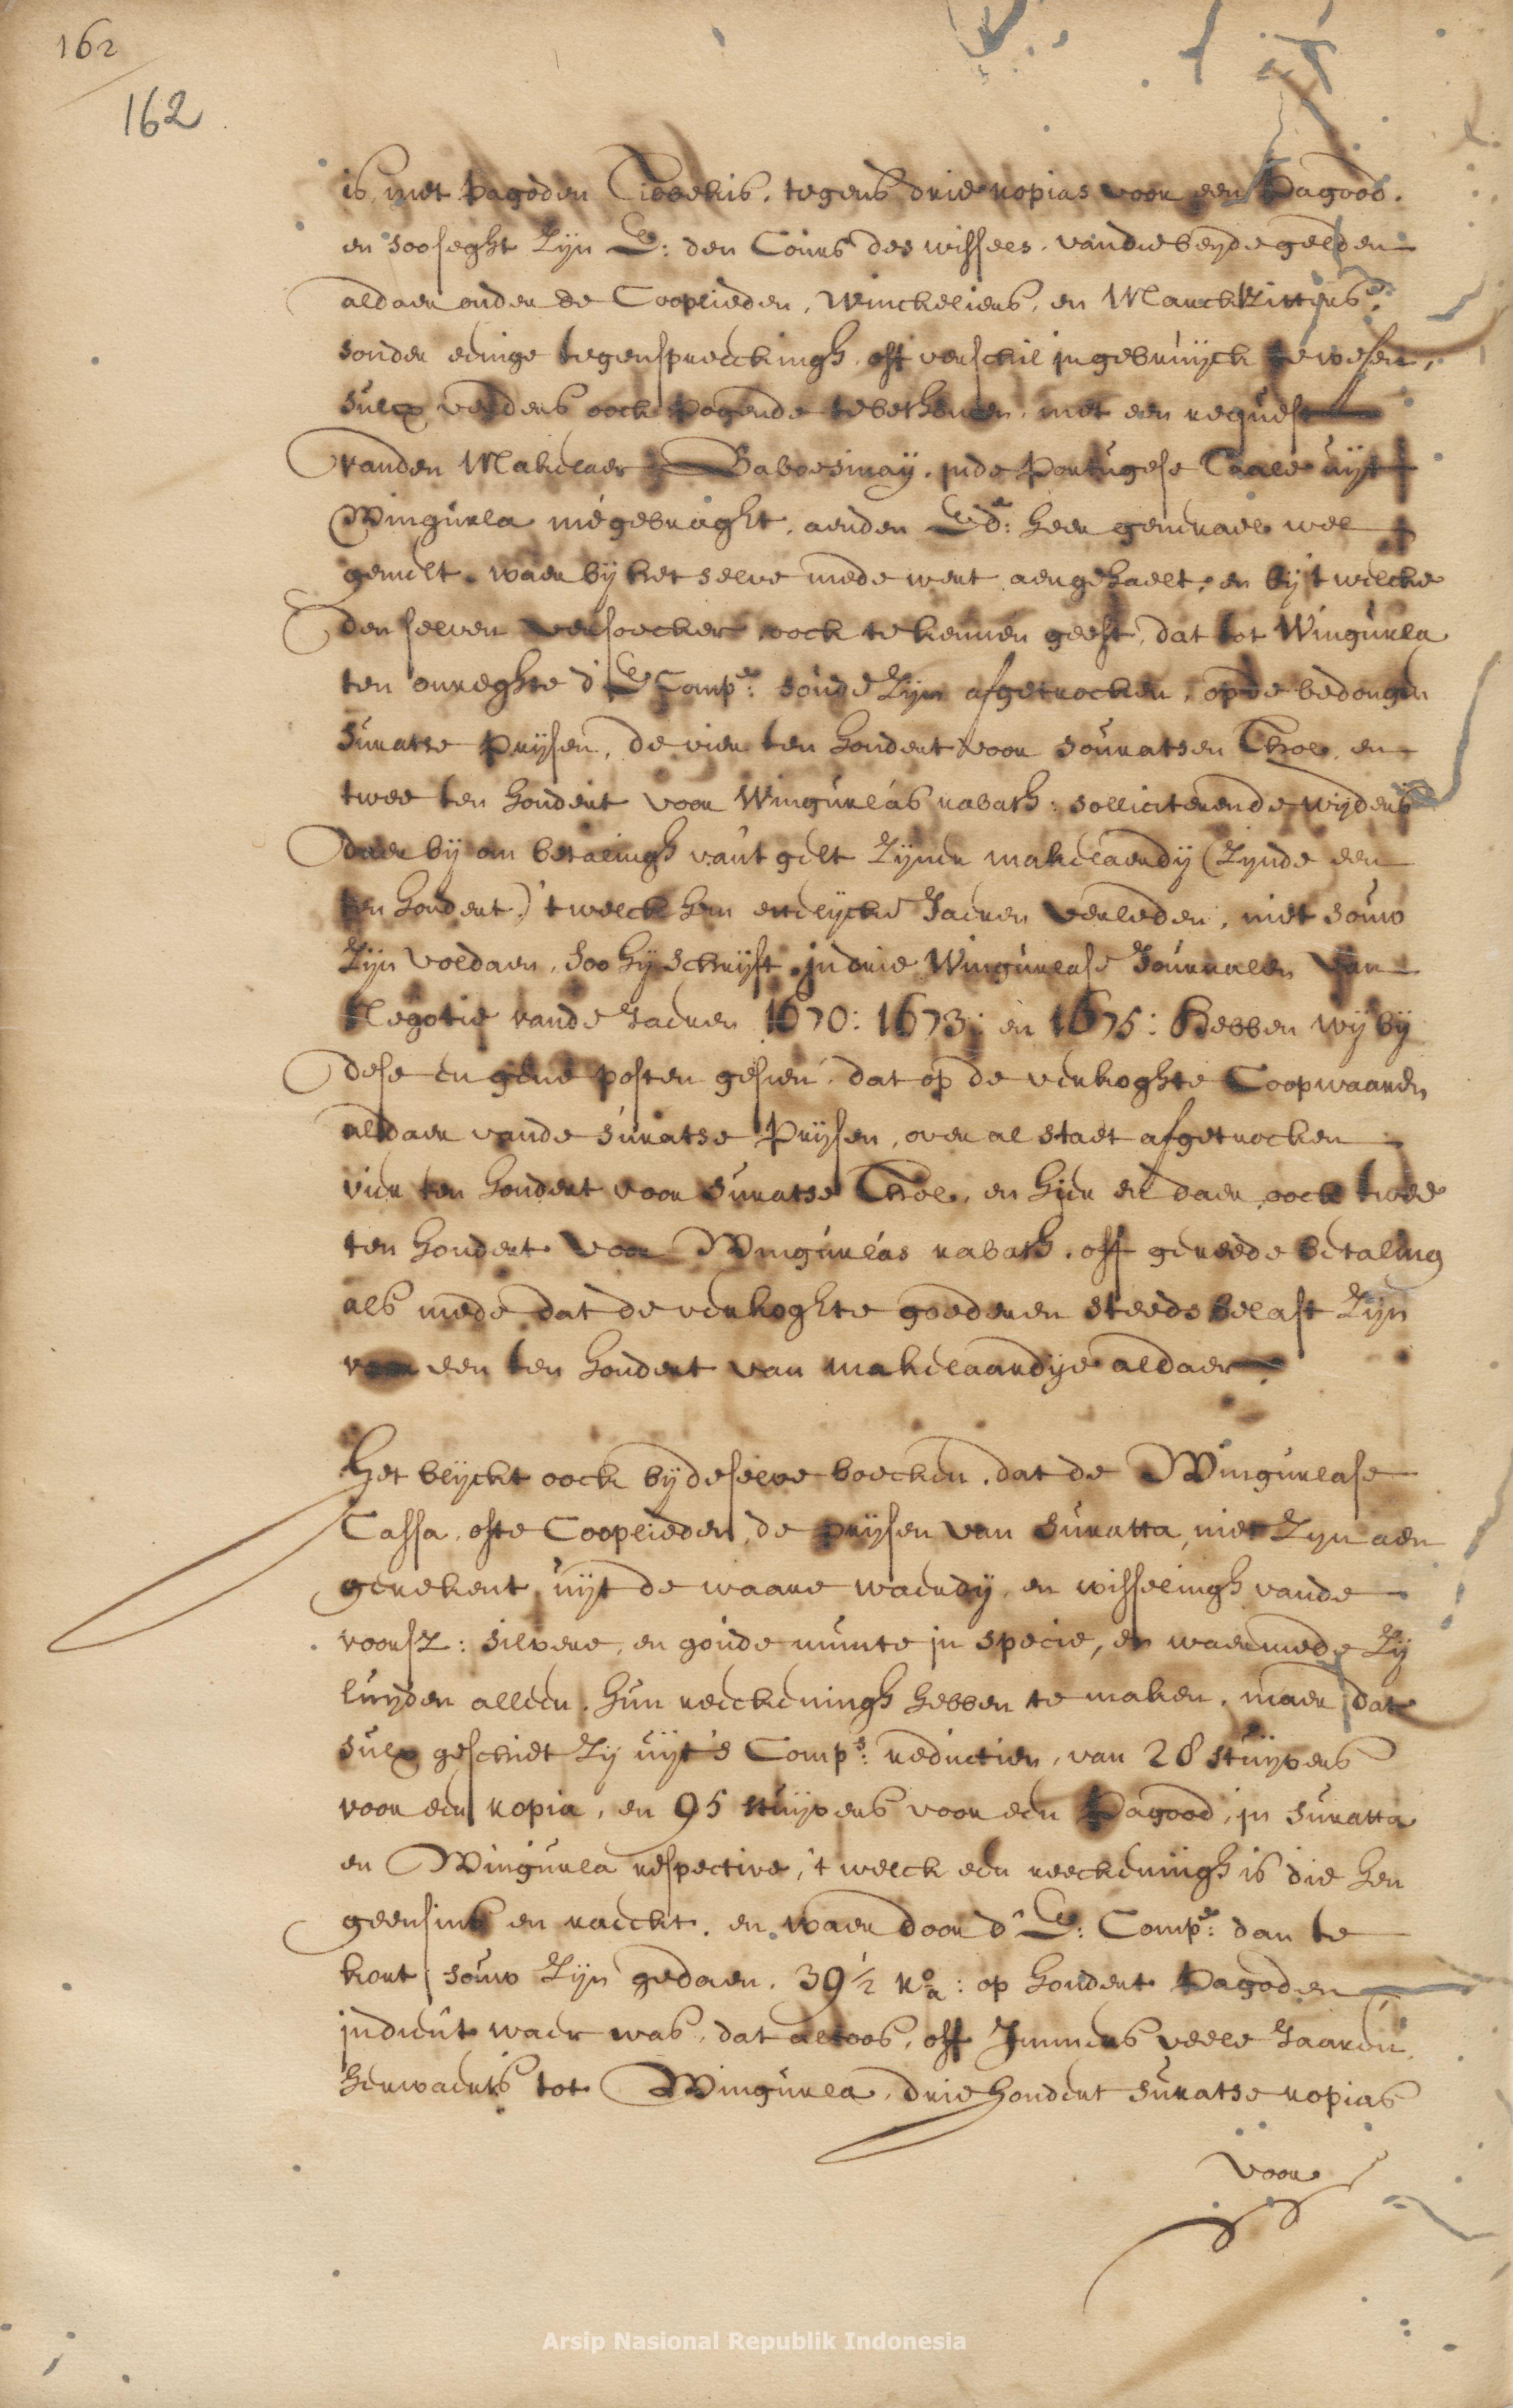 162
162
is, met pagoden Tibbekis, tegens drie ropias voor een Pagood.
en soo seght Zijn E: den Cours des wissels, van die beijde gelden
aldaer onder de Cooplieden, Winckeliers, en Marckt Zitters,
sonder eenige tegenspreeckingh, off verschil in gebruijck te wesen,
sulx verders oock pogende te bethonen, met een request
vanden Makelaer Baboesinaij, in de Portugese Taale uijt
Wingurla mégebraght, aenden Ed.e: heer generael wel
gemelt, waer bij het selve mede wert aengehaelt, en bij 't welcke
den selven versoecker, oock te kennen geeft, dat tot Wingurla
ten onreghte d' E Comp.e: soude Zijn afgetrocken, op de bedongen
suratse prijsen, de vier ten hondert voor souratsen Thol, en
twee ten hondert voor Wingurlas rabath: solliciterende wijders
daer bij om betalingh van 't gelt Zijner makelaerdij (Zijnde een
ten hondert) 't welck hem ettelijcke Jaeren verleden, niet souw
Zijn voldaen, soo hij schrijft, in drie Wingurlase Journalen van
Negotie vande Jaeren 1670: 1673: en 1675: Hebben wij bij
dese en gene posten gesien, dat op de verkoghte Coopwaaren
aldaer vande suratse Prijsen, over al staet afgetrocken
vier ten hondert voor suratse Thol, en hier en daer, oock twee
ten hondert voor Wingurlas rabath, off gereede betaling
als mede dat de verkoghte goederen steeds belast Zijn
een ten hondert van makelaardije aldaer
Het blijckt oock bij deselve boecken, dat de Wingurlase
Cassa, ofte Cooplieden, de prijsen van suratta, niet Zijn aen
gerekent, uijt de waare waerdij, en wisselingh vande
voorsz: silvere, en goude munte in specie, en waermede Zij
luijden alleen, hun reeckeningh hebben te maken, maer dat
sulx geschiet Zij uijt 's Comp.s: reductien, van 28 stuijvers
voor een ropia, en 95 stuijvers voor een Pagood, in suratta
en Wingurla respective, 't welck een reeckeningh is die hen
geensins en raeckt, en waer door d' E: Comp.e: dan te
kort souw Zijn gedaen, 39 1/2 Ro.a: op hondert Pagoden
indien 't waer was, dat altoos, off Immers veele Jaaren,
herwaerts tot Wingurla, drie hondert suratse ropias
voor
Arsip Nasional Republik Indonesia